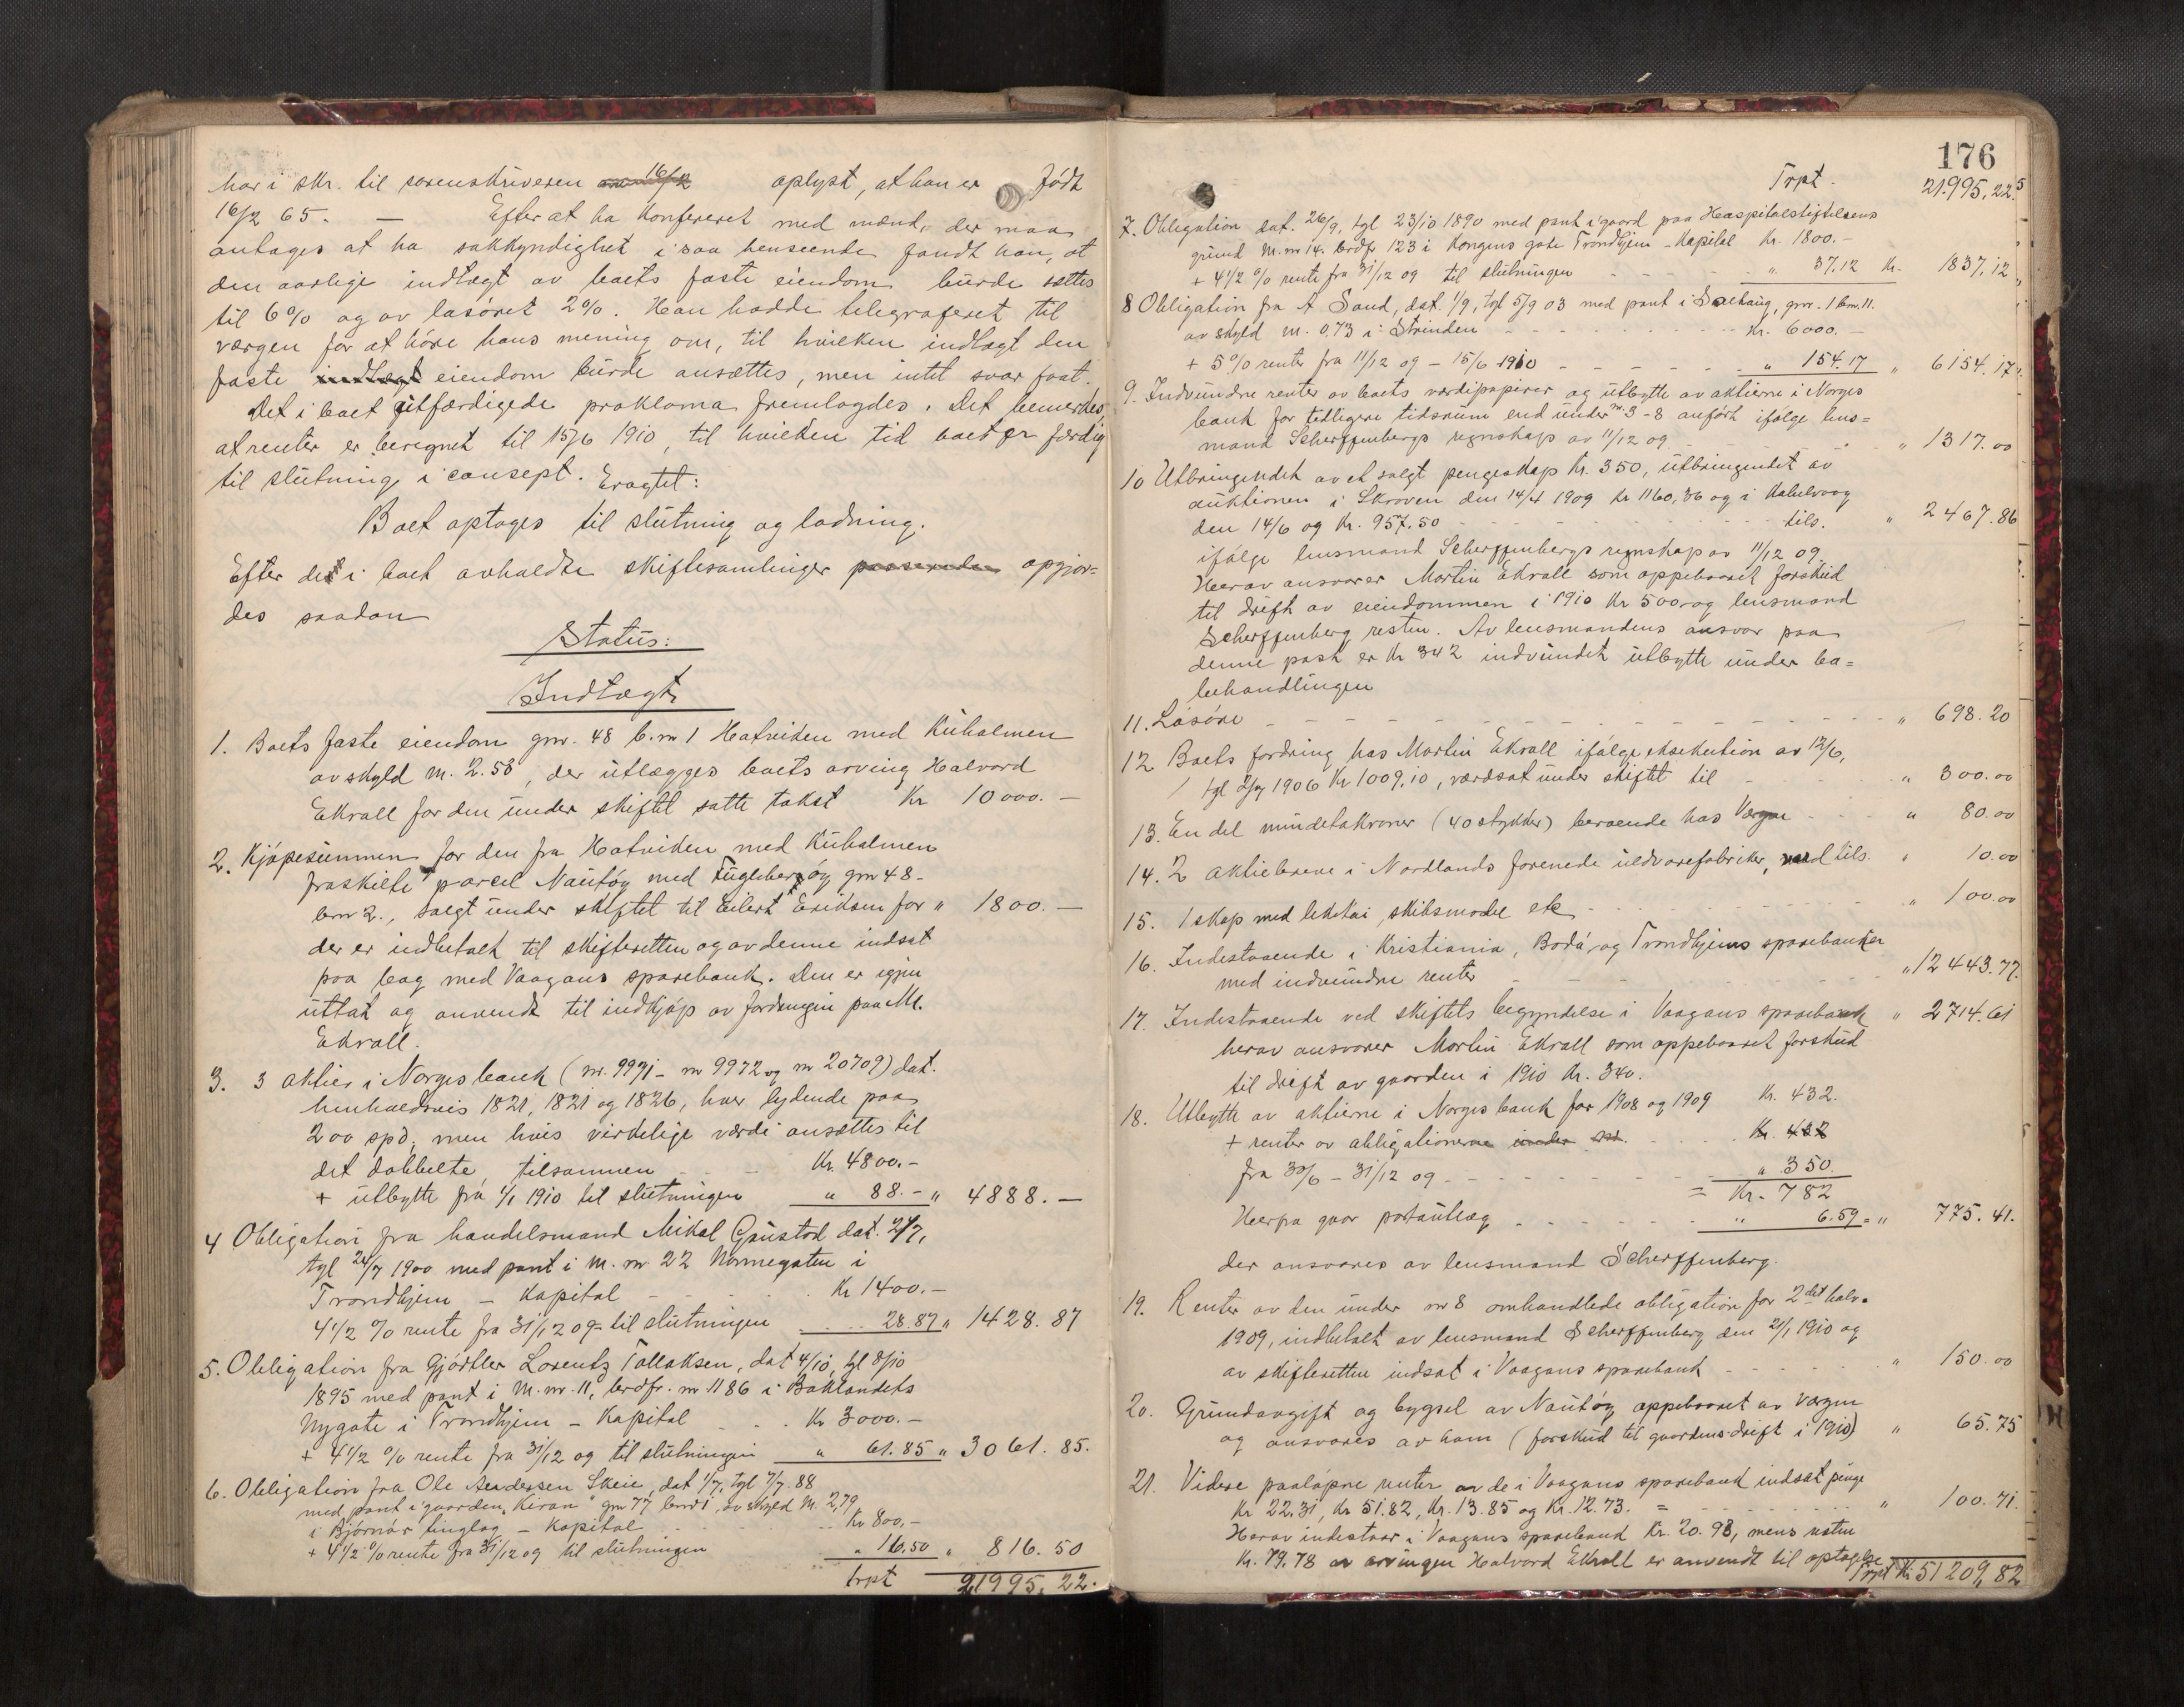 har i skr. til sorenskriveren 16/2 oplyst, at han er født
16/2 65. — Efter at ha konfereret med mænd, der maa
antages at ha sakkyndighet i saa henseende fandt han, at
den aarlige indtægt av boets faste eiendom burde sættes
til 6% og av løsøret 2%. Han hadde telegraferet til
værgen for at høre hans mening om, til hvilken indtægt den
faste indtægt eiendom burde ansættes, men intet svar faat.
Det i boet utfærdigede proklama fremlagdes. Det bemerkes,
at renter er beregnet til 15/6 1910, til hvilken tid boet er færdig
til slutning i consept. Eragtet:
Boet optages til slutning og lodning.
Efter det i boet avholdte skiftesamlinger passerede opgjor=
des saadan
Status:
Indtægt
1. Boets faste eiendom gnr. 48 b.nr 1 Hatviken med Kuholmen
av skyld m. 2.58, der utlægges boets arving Halvard
Ekrall for den under skiftet satte takst Kr 10000.—
2. Kjøpesummen for den fra Hatviken med Kuholmen
fraskilte parcel Nautøy med Fugleberøy gnr 48-
bnr 2., solgt under skiftet til Eilert Eriksen for " 1800.—
der er indbetalt til skifteretten og av denne indsat
paa bog med Vaagans sparebank. Den er igjen
uttat og anvendt til indkjøp av fordringen paa M.
Ekrall.
3. 3 aktier i Norges bank (nr. 9971 - nr 9972 og nr 20709) dat.
henholdsvis 1821, 1821 og 1826, hver lydende paa
200 spd, men hvis virkelige værdi ansættes til
det dobbelte tilsammen Kr. 4800.-
+ utbytte fra 1/1 1910 til slutningen " 88.- " 4888.—
4 Obligation fra handelsmand Mikal Gaustad dat. 21/7,
tgl 24/7 1900 med pant i M. nr 22 Nonnegaten i
Trondhjem - Kapital Kr 1400.-
4 1/2 % rente fra 31/12 09 til slutningen 28.87 " 1428.87
5. Obligation fra Gjørtler Lorentz Tollaksen, dat 4/10, tgl 8/10
1895 med pant i M. nr. 11, brdfr. nr 1186 i Baklandets
Nygate i Trondhjem - Kapital Kr 3000.-
+ 4 1/2 % rente fra 31/12 09 til slutningen " 61.85 " 3061.85.
6. Obligation fra Ole Andersen Skeie, dat 1/7, tgl 7/7 88
med pant i gaarden "Kiran" gnr 77, bnr 1, av skyld M. 2,79
i Bjørnør tinglag - Kapital Kr 800,-
+ 4 1/2 % rente fra 31/12 09 til slutningen " 16.50 " 816.50
trpt 21995,22.
176
Trpt. 21.995,22.5
7. Obligation dat. 26/9, tgl 23/10 1890 med pant i gaard paa Hospitalstiftelsens
grund M. nr 14. brdfr 123 i Kongens gate Trondhjem - Kapital Kr. 1800.-
+ 4 1/2 % rente fra 31/12 09 til slutningen " 37.12 Kr. 1837,12
8 Obligation fra A Sand, dat. 1/9, tgl 5/9 03 med pant i Solhaug, gnr. 1 bnr. 11.
av skyld M. 0.73 i Strinden Kr. 6000.-
+ 5% rente fra 11/12 09 - 15/6 1910 " 154.17 " 6154.17.
9. Indvundne renter av boets værdipapirer og utbytte av aktierne i Norges
bank for tidligere tidsrum end under nr. 3-8 anført ifølge lens=
mand Scherffenbergs regnskap av 11/12 09 " 1317.00
10 Utbringendet av et solgt pengeskap Kr. 350, utbringendet av
auktionen i Skroven den 14/4 1909 Kr 1160,36 og i Kabelvaag
den 14/6 og Kr. 957.50 tils. " 2467.86
ifølge lensmand Scherffenbergs regnskap av 11/12 09.
Herav ansvarer Martin Ekrall som oppebaaret forskud
til drift av eiendommen i 1910 Kr 500 og lensmand
Scherffenberg resten. Av lensmandens ansvar paa
denne post er Kr 342 indvundet utbytte under bo=
behandlingen
11. Løsøre " 698.20
12 Boets fordring hos Martin Ekrall ifølge eksekution av 12/6,
tgl 2/7 1906 Kr 1009,10, værdsat under skiftet til " 300.00
13. En del mindetakroner (40 stykker) beroende hos Værgen " 80.00
14. 2 aktiebreve i Nordlands forenede uldvarefabriker, værd tils. " 10.00
15. 1 skap med leketøi, skibsmodel etc " 100.00
16. Indestaaende i Kristiania, Bodø, og Trondhjems sparebanker
med indvundne renter " 12443.77.
17. Indestaaende ved skiftets begyndelse i Vaagans sparebank " 2714.61
herav ansvarer Martin Ekrall som oppebaaret forskud
til drift av gaarden i 1910 Kr. 340.
18. Utbytte av aktierne i Norges bank for 1908 og 1909 Kr. 432.
+ renter av obligationerne under nr. Kr. 432
fra 30/6 - 31/12 09 " 350.
= Kr. 782
Herfra gaar portoutlæg " 6.59 = " 775.41.
der ansvares av lensmand Scherffenberg.
19. Renter av den under nr 8 omhandlede obligation for 2det halv.
1909, indbetalt av lensmand Scherffenberg den 21/1 1910 og
av skifteretten indsat i Vaagans sparebank " 150.00
20. Grundavgift og bygsel av Nautøy oppebaaret av værgen
og ansvares av ham (forskud til gaardens drift i 1910) " 65.75
21. Videre paaløpne renter av de i Vaagans sparebank indsat penge
Kr 22.31, Kr 51.82, Kr. 13.85 og Kr. 12.73. = " 100.71.
Herav indestaar i Vaagans sparebank Kr. 20.93, mens resten
Kr. 79.78 av arvingen Halvard Ekrall er anvendt til optagelse
Trpt Kr 51209,82